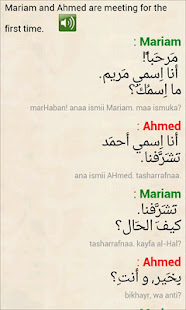 Mariam and Ahmed are meeting for the
first time.
Mariam :
مَرحَباً!
أنا اِسمي مَريَم.
ما اِسمُكَ؟
marHaban! anaa ismii Mariam. maa ismuka?
Ahmed :
أنا اِسمي أحمَد
تَشَرَّفنا.
ana ismii AHmed. tasharrafnaa.
Mariam :
تَشَرَّفنا.
كَيفَ الحَال؟
tasharrafnaa. kayfa al-Hal?
Ahmed :
بِخَير, و أنتِ؟
bikhayr, wa anti?